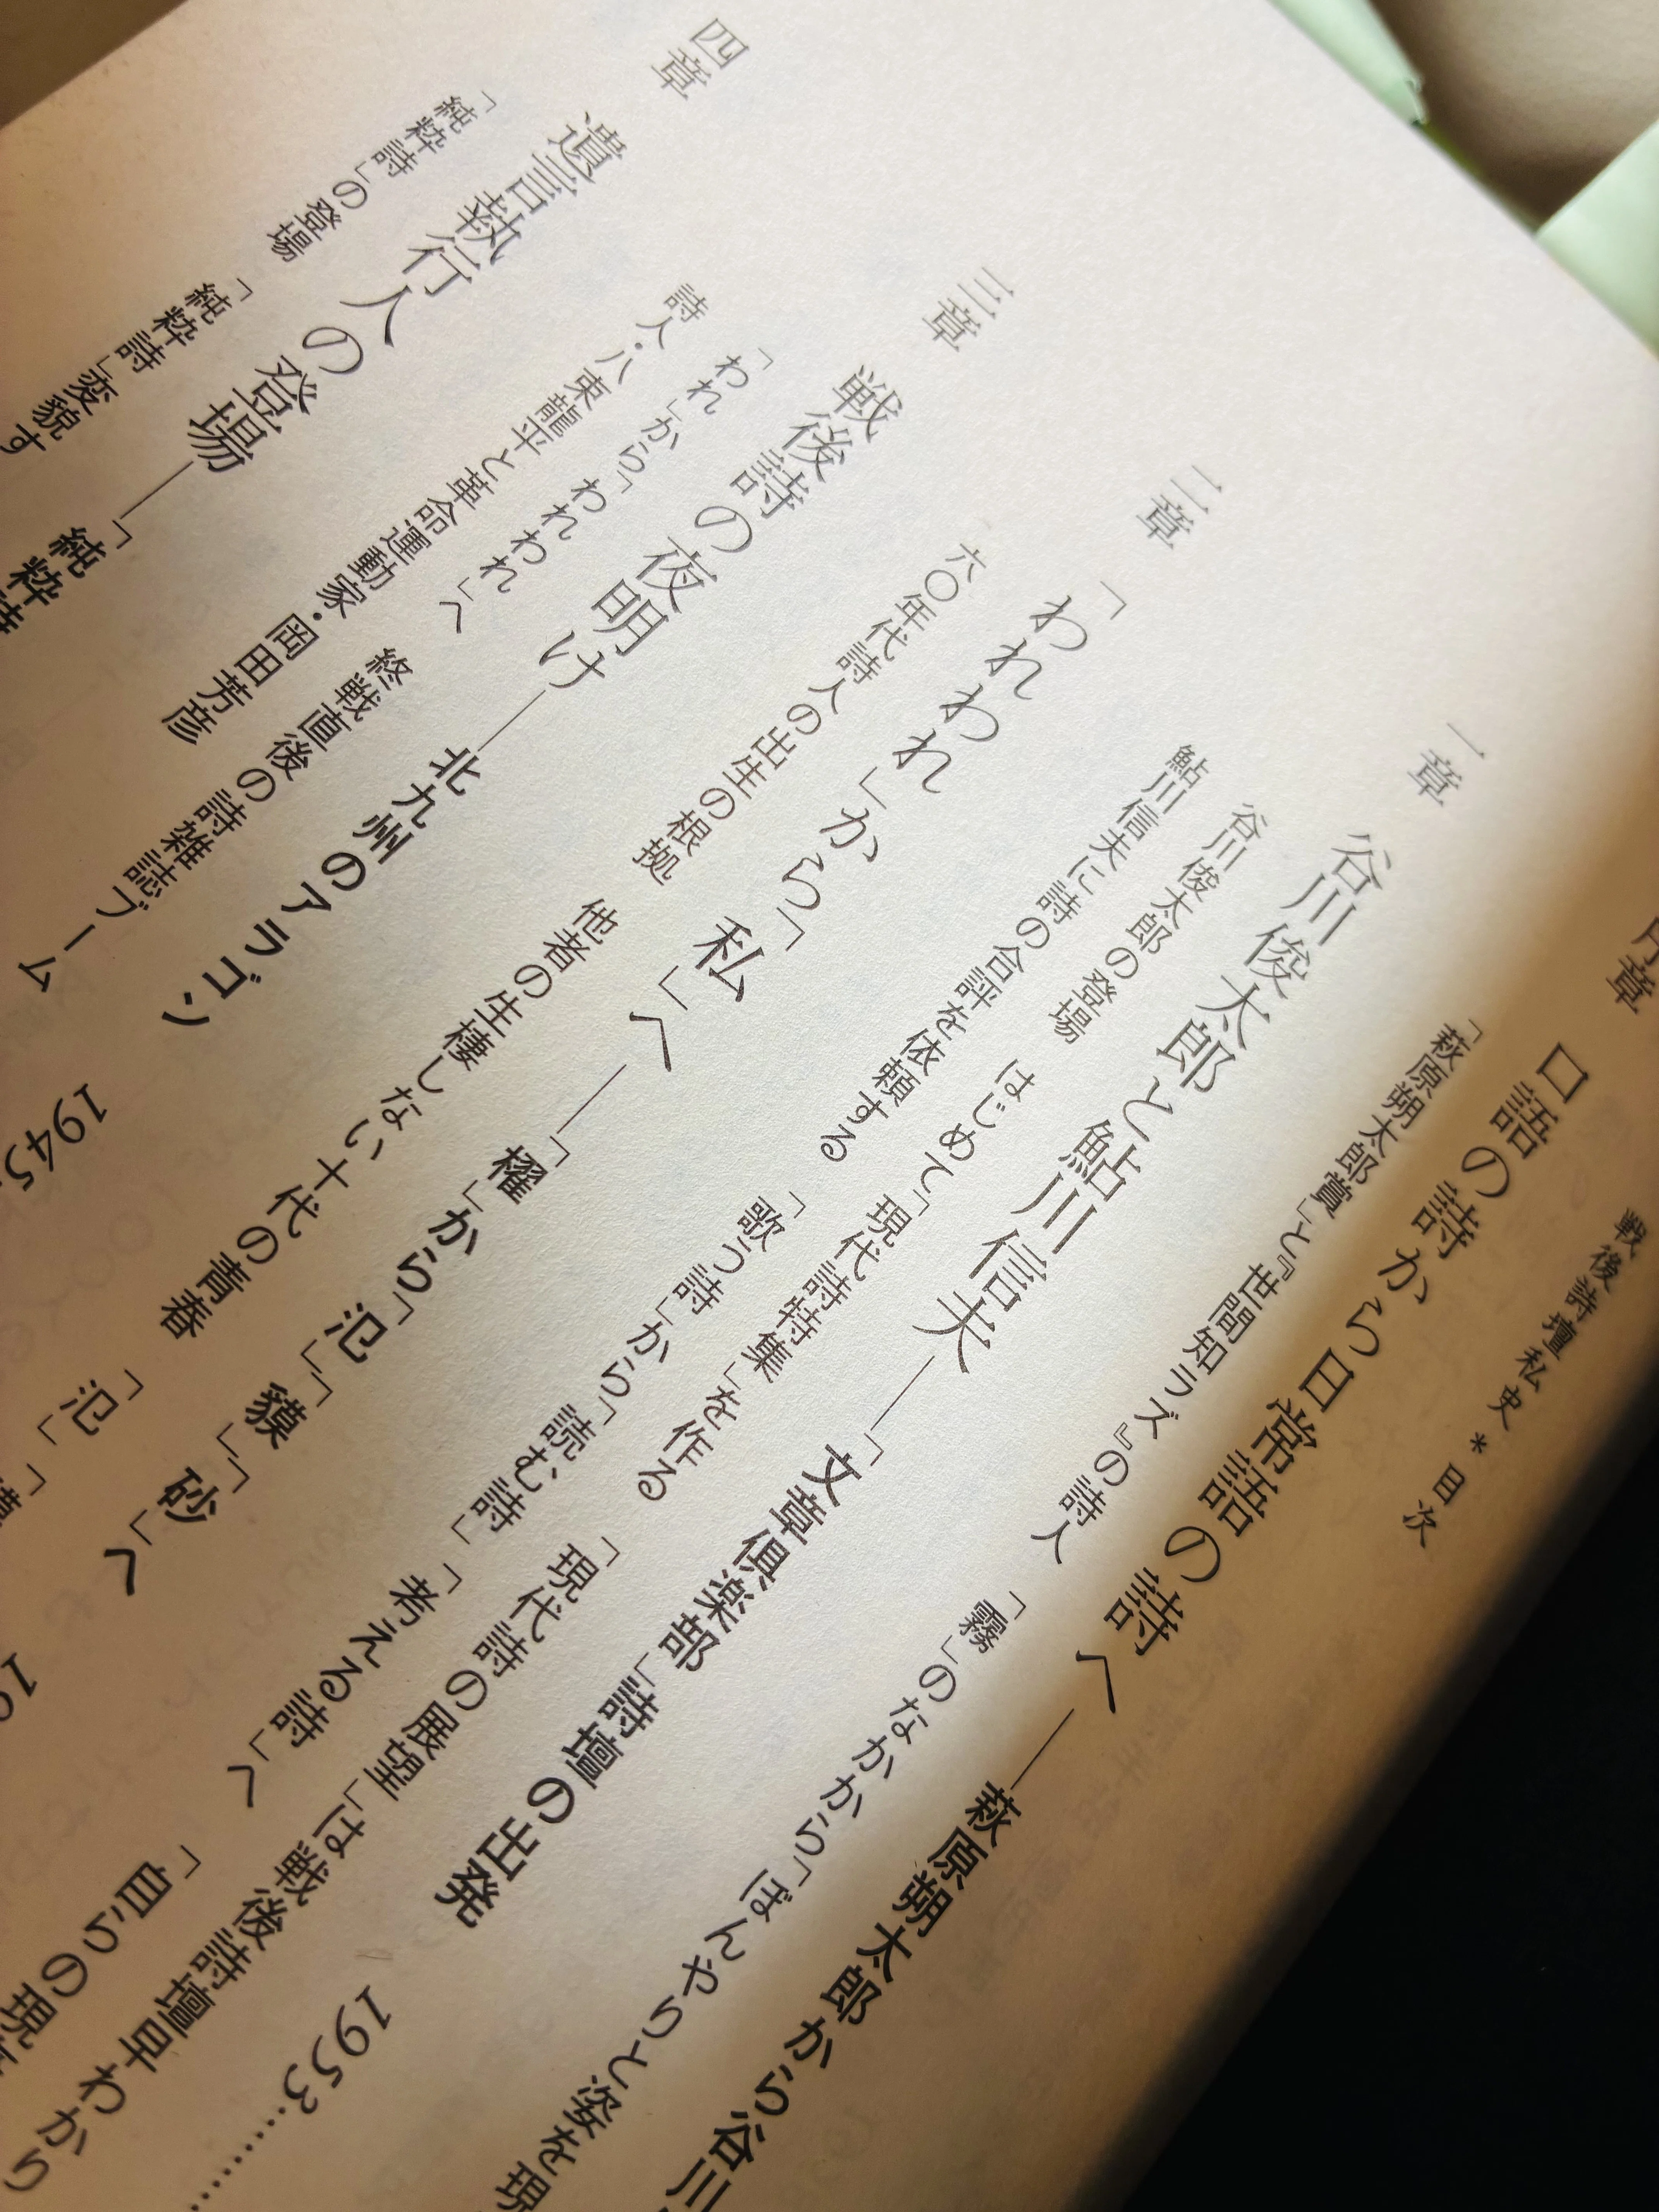 戦後詩壇私史＊目次
序章
口語の詩から日常語の詩へ——萩原朔太郎から谷川
「萩原朔太郎賞」と『世間知ラズ』の詩人　「霧」のなかから「ぼんやりと姿を現
一章
谷川俊太郎と鮎川信夫——「文章倶楽部」詩壇の出発　1953………
谷川俊太郎の登場　はじめて「現代詩特集」を作る　「現代詩の展望」は戦後詩壇早わかり
鮎川信夫に詩の合評を依頼する　「歌う詩」から「読む詩」「考える詩」へ　「自らの現
二章
「われわれ」から「私」へ——「櫂」から「氾」「貘」「砂」へ　19
六〇年代詩人の出生の根拠　他者の生棲しない十代の青春　「氾」「貘
三章
戦後詩の夜明け——北九州のアラゴン　1945
「われ」から「われわれ」へ　終戦直後の詩雑誌ブーム
詩人・八束龍平と革命運動家・岡田芳彦
四章
遺言執行人の登場——「純粋詩
「純粋詩」の登場　「純粋詩」変貌す